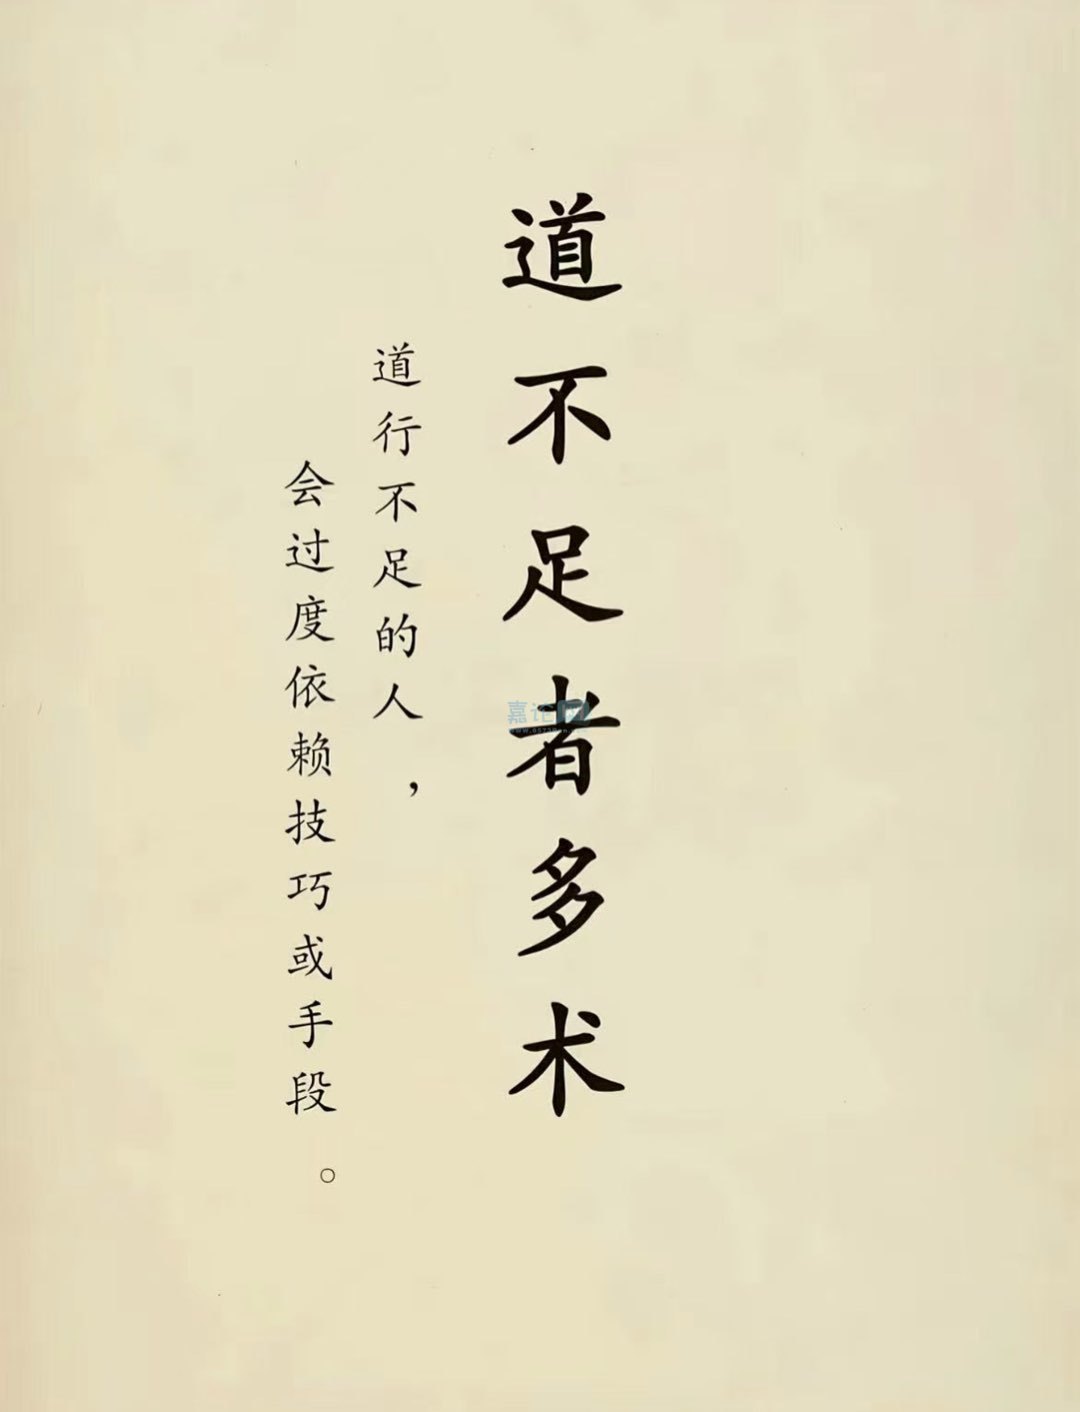 道不足者多术
道行不足的人，
会过度依赖技巧或手段。
嘉论网